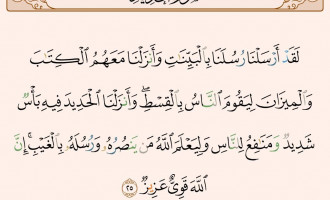 لَقَدْ أَرْسَلْنَا رُسُلَنَا بِالْبَيِّنَٰتِ وَأَنزَلْنَا مَعَهُمُ الْكِتَٰبَ
وَالْمِيزَانَ لِيَقُومَ النَّاسُ بِالْقِسْطِ ۖ وَأَنزَلْنَا الْحَدِيدَ فِيهِ بَأْسٌ
شَدِيدٌ وَمَنَٰفِعُ لِلنَّاسِ وَلِيَعْلَمَ اللَّهُ مَن يَنصُرُهُۥ وَرُسُلَهُۥ بِالْغَيْبِ ۚ إِنَّ
اللَّهَ قَوِىٌّ عَزِيزٌ ٢٥